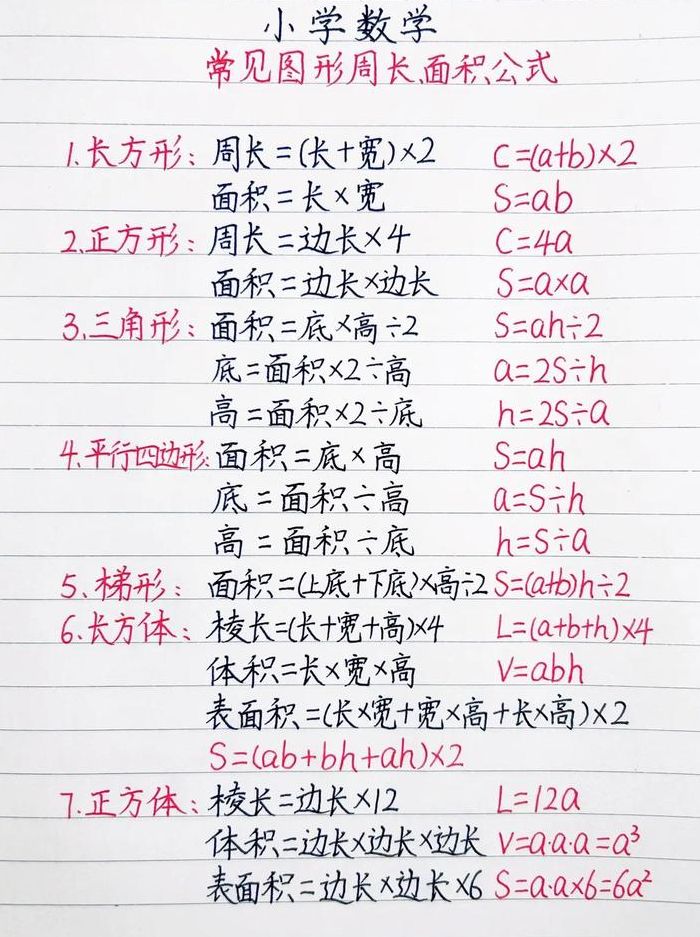 小学数学
常见图形周长、面积公式
1.长方形：周长=(长+宽)×2 C=(a+b)×2
面积=长×宽 S=ab
2.正方形：周长=边长×4 C=4a
面积=边长×边长 S=a×a
3.三角形：面积=底×高÷2 S=ah÷2
底=面积×2÷高 a=2S÷h
高=面积×2÷底 h=2S÷a
4.平行四边形：面积=底×高 S=ah
底=面积÷高 a=S÷h
高=面积÷底 h=S÷a
5、梯形：面积=(上底+下底)×高÷2 S=(a+b)h÷2
6.长方体：棱长=(长+宽+高)×4 L=(a+b+h)×4
体积=长×宽×高 V=abh
表面积=(长×宽+宽×高+长×高)×2
S=(ab+bh+ah)×2
7.正方体：棱长=边长×12 L=12a
体积=边长×边长×边长 V=a·a·a=a³
表面积=边长×边长×6 S=a·a×6=6a²